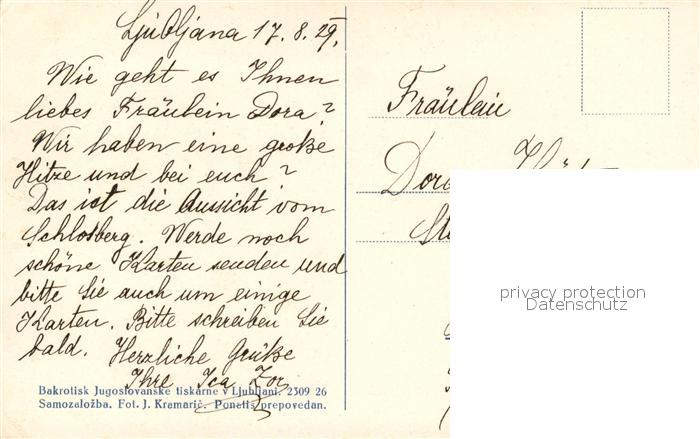 Ljubljana 17. 8. 29.
Wie geht es Ihnen
liebes Fräulein Dora?
Wir haben eine große
Hitze und bei euch?
Das ist die Aussicht vom
Schlosberg. Werde noch
schöne Karten senden und
bitte Sie auch um einige
Karten. Bitte schreiben Sie
bald. Herzliche Grüße
Ihre Ica Zor
Bakrotisk Jugoslovanske tiskarne v Ljubljani. 2309 26
Samozaložba. Fot. J. Kramarič. Ponatis prepovedan.
Fräulein
privacy protection
Datenschutz